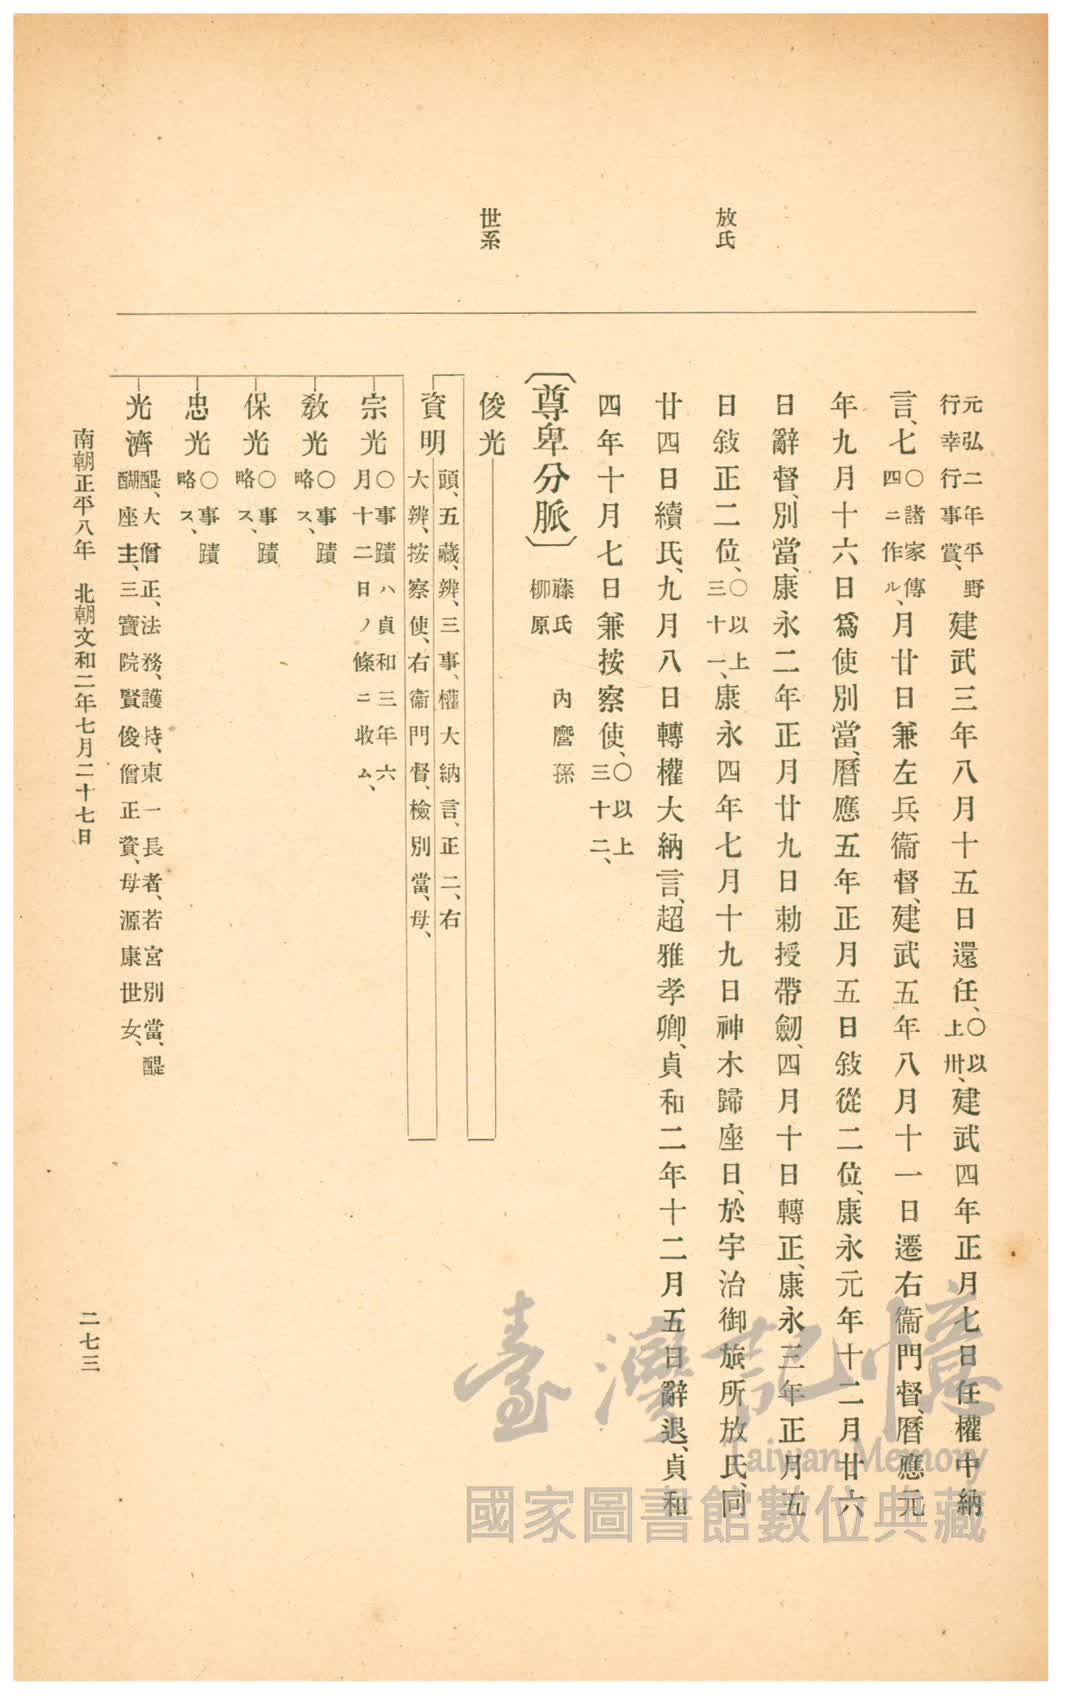 放氏
世系
元弘二年平野
行幸行事賞、建武三年八月十五日還任、〇以上卅、建武四年正月七日任權中納
言、七〇諸家傳四ニ作ル、月廿日兼左兵衞督、建武五年八月十一日遷右衞門督、曆應元
年九月十六日爲使別當、曆應五年正月五日敍從二位、康永元年十二月廿六
日辭督、別當、康永二年正月廿九日勅授帶劒、四月十日轉正、康永三年正月五
日敍正二位、〇以上三十一、康永四年七月十九日神木歸座日、於宇治御旅所放氏、同
廿四日續氏、九月八日轉權大納言、超雅孝卿、貞和二年十二月五日辭退、貞和
四年十月七日兼按察使、〇以上三十二、
〔尊卑分脈〕藤氏 內麿孫
柳原
俊光
資明 頭、五藏、辨、三事、權大納言、正二、右
大辨、按察使、右衞門督、檢別當、母、
宗光 〇事蹟ハ貞和三年六
月十二日ノ條ニ收ム、
敎光 〇事蹟
略ス、
保光 〇事蹟
略ス、
忠光 〇事蹟
略ス、
光濟 醍、大僧正、法務、護持、東一長者、若宮別當、醍
醐座主、三寶院賢俊僧正資、母源康世女、
南朝正平八年 北朝文和二年七月二十七日
二七三
臺灣記憶
Taiwan Memory
國家圖書館數位典藏